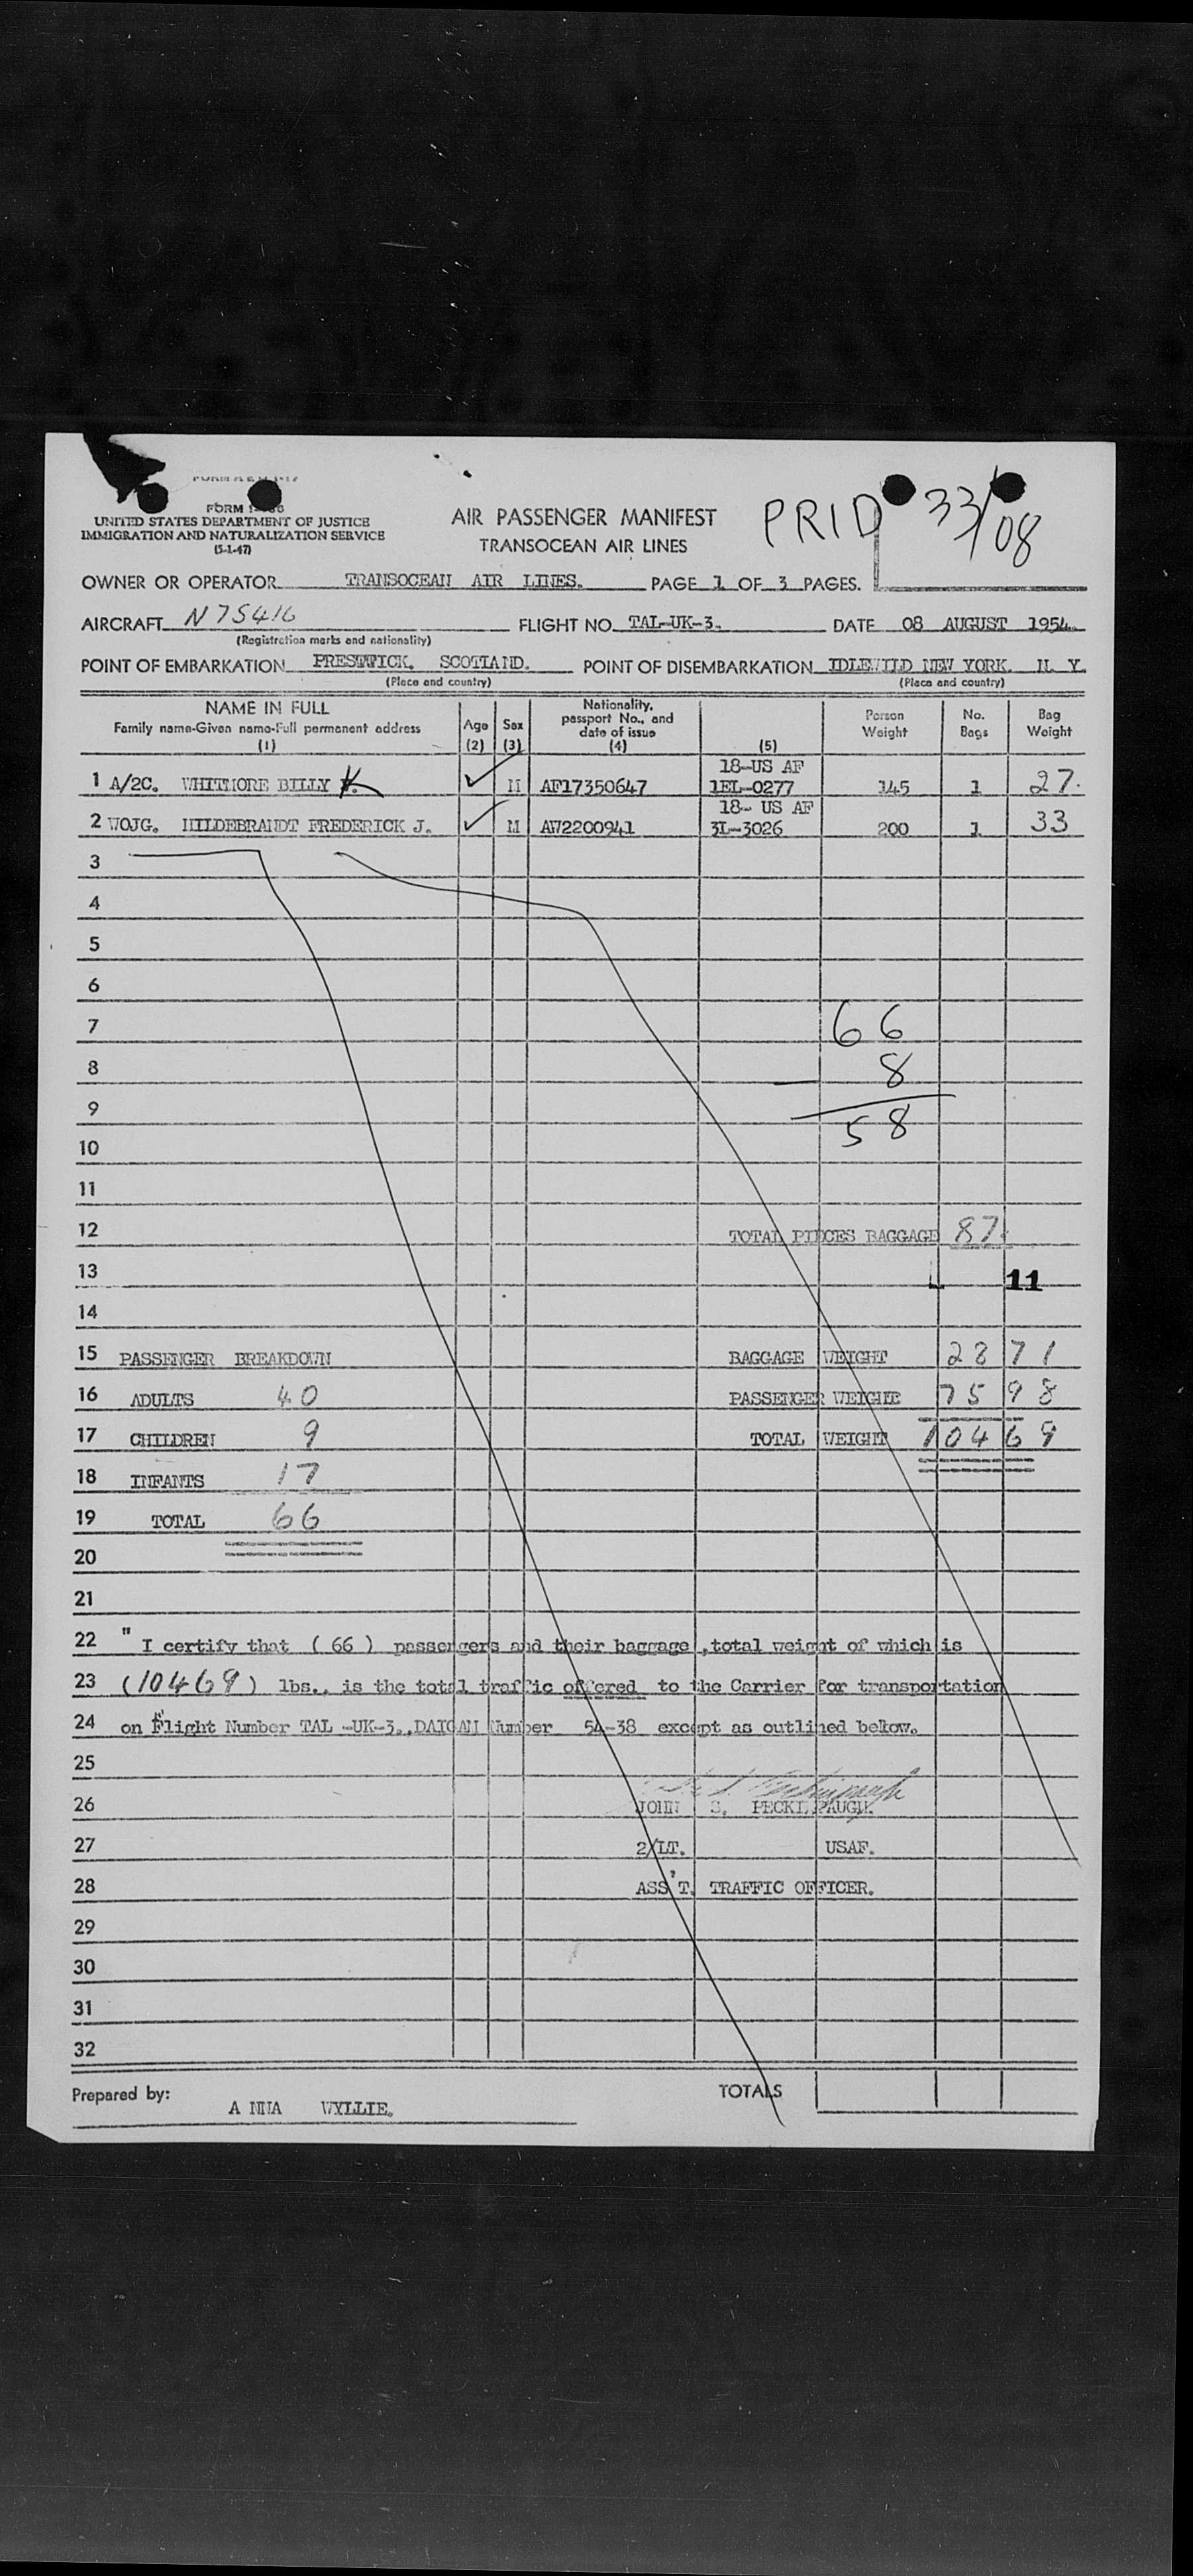 FORM I-466
UNITED STATES DEPARTMENT OF JUSTICE
IMMIGRATION AND NATURALIZATION SERVICE
(5-1-47)
AIR PASSENGER MANIFEST
TRANSOCEAN AIR LINES
PRID 33/08
OWNER OR OPERATOR TRANSOCEAN AIR LINES. PAGE 1 OF 3 PAGES.
AIRCRAFT N75416 FLIGHT NO. TAL-UK-3. DATE 08 AUGUST 1954.
(Registration marks and nationality)
POINT OF EMBARKATION PRESTWICK, SCOTLAND. POINT OF DISEMBARKATION IDLEWILD NEW YORK. N. Y.
(Place and country) (Place and country)
NAME IN FULL
Family name-Given name-Full permanent address
(1)
Age
(2)
Sex
(3)
Nationality,
passport No., and
date of issue
(4)
(5)
Person
Weight
No.
Bags
Bag
Weight
18-US AF
1 A/2C. WHITMORE BILLY M AF17350647 1EL-0277 145 1 27.
18- US AF
2 WOJG. HILDEBRANDT FREDERICK J. M AW2200941 3L-3026 200 1 33
3
4
5
6
7 66
8 8
9
10 58
11
12 TOTAL PIECES BAGGAGE 87.
13 11
14
15 PASSENGER BREAKDOWN BAGGAGE WEIGHT 2871
16 ADULTS 40 PASSENGER WEIGHT 7598
17 CHILDREN 9 TOTAL WEIGHT 10469
18 INFANTS 17
19 TOTAL 66
20
21
22 " I certify that ( 66 ) passengers and their baggage ,total weight of which is
23 (10469) lbs., is the total traffic offered to the Carrier for transportation
24 on Flight Number TAL -UK-3.,DAIGAN Number 54-38 except as outlined below.
25
26 JOHN S. PECKINPAUGH.
27 2/LT. USAF.
28 ASS'T. TRAFFIC OFFICER.
29
30
31
32
Prepared by: ANNA WYLLIE. TOTALS